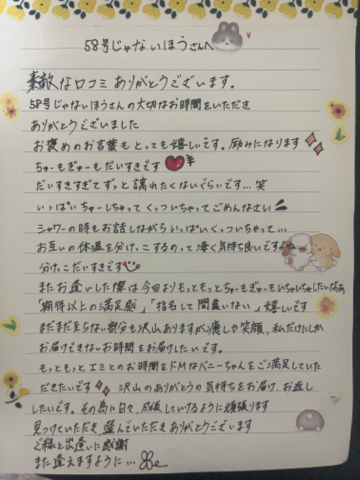 58号じゃないほうさんへ
素敵な口コミありがとうございます。
58号じゃないほうさんの大切なお時間をいただき
ありがとうございました
お褒めのお言葉もとっても嬉しいです。励みになります
ちゅーもぎゅーもだいすきです
だいすきすぎてずっと離れたくないぐらいです…笑
いっぱいちゅーしちゃってくっついちゃってごめんなさい
シャワーの時もお話しながらいっぱいくっついちゃって…
お互いの体温を分けっこするのって凄く気持ち良いですよね
分けっこだいすきです
またお逢いした際は今回よりもっともっとちゅーもぎゅーもいちゃいちゃしたいなぁ
「期待以上の満足感」「指名して間違いない」嬉しいです
まだまだ至らない部分も沢山ありますが癒しや笑顔、私だけにしか
お届けできないお時間をお届けしたいです。
もっともっとエミとのお時間をドMなバニーちゃんをご満足していた
だきたいです 沢山のありがとうの気持ちをお届け、お返し
したいです。その為に日々、成長していけるように頑張ります
見つけていただき選んでいただきありがとうございます
ご縁と出逢いに感謝
また逢えますように…